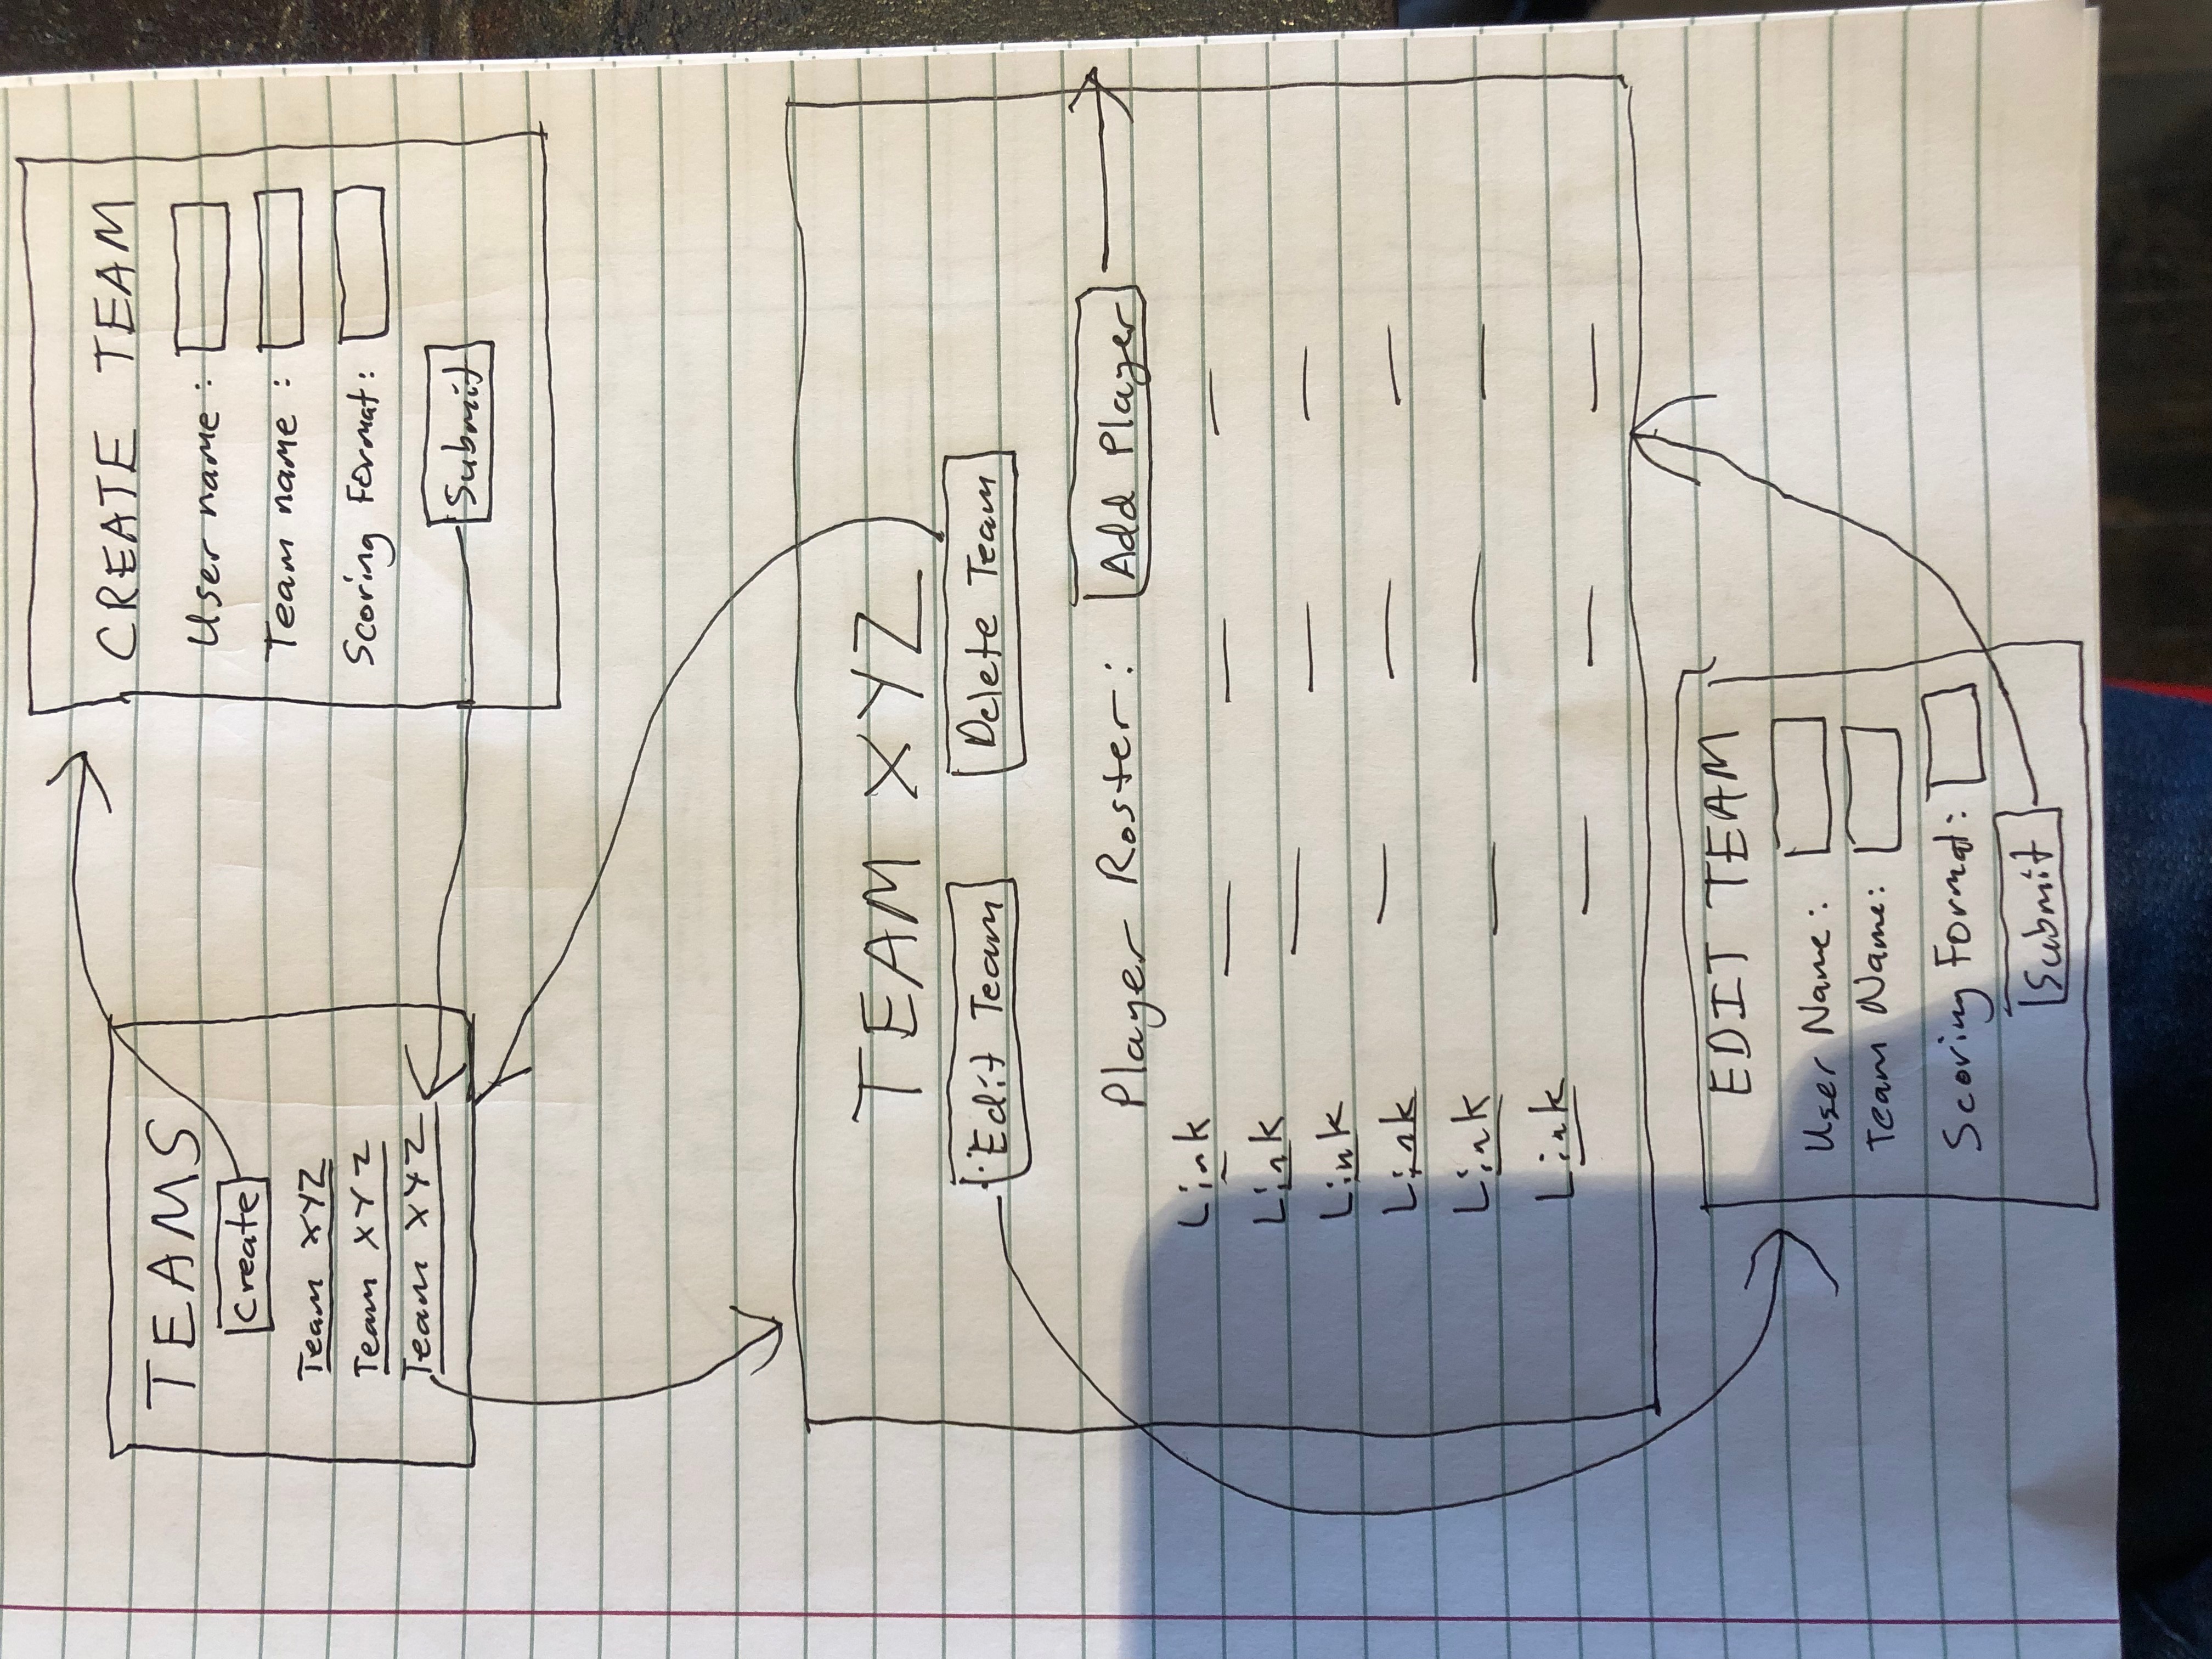 TEAMS
Create
Team XYZ
Team XYZ
Team XYZ
CREATE TEAM
User name :
Team name :
Scoring Format:
Submit
TEAM XYZ
Edit Team Delete Team
Player Roster: Add Player
Link
Link
Link
Link
Link
Link
EDIT TEAM
User Name:
Team Name:
Scoring Format:
Submit